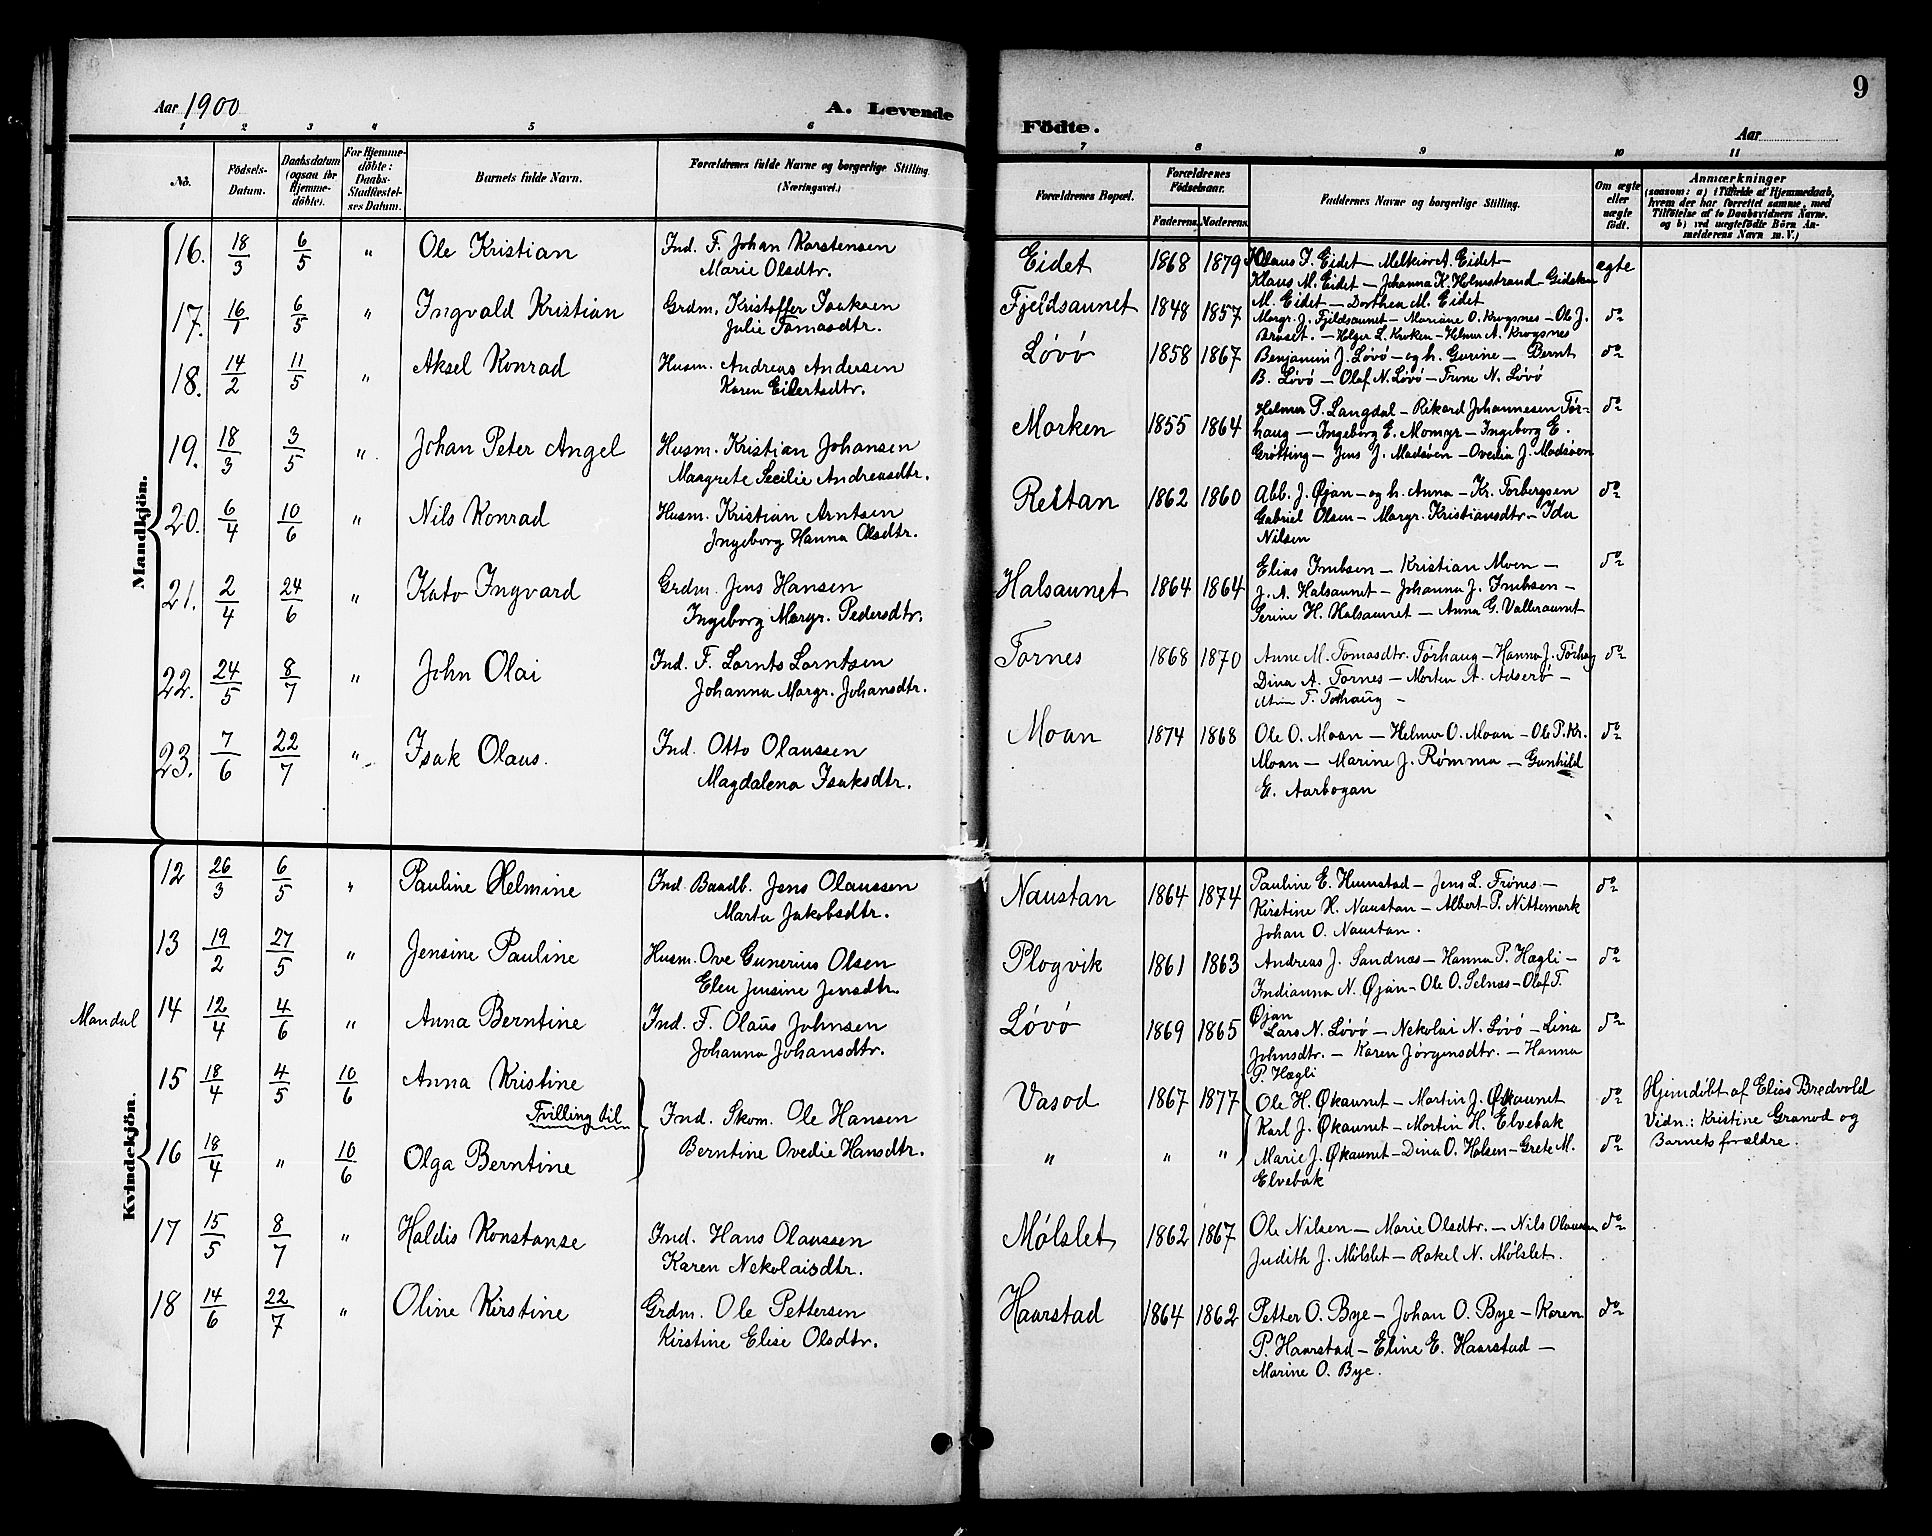 Aar 1900
A. Levende
Födte.
9
Aar
1 2 3 4 5 6 7 8 9 10 11
No.
Födsels-
Datum.
Daabsdatum
(ogsaa for
Hjemme-
döbte).
For Hjemme-
döbte:
Daabs-
Stadfæstel-
ses Datum.
Barnets fulde Navn.
Forældrenes fulde Navne og borgerlige Stilling.
(Næringsvei.)
Forældrenes Bopæl.
Forældrenes
Födselsaar.
Faderens. Moderens.
Faddernes Navne og borgerlige Stilling.
Om ægte
eller
uægte
födt.
Anmærkninger
(saasom: a) i Tilfælde af Hjemmedaab,
hvem der har forrettet samme, med
Tilföielse af to Daabsvidners Navne.
og b) ved uægtefödte Börn An-
melderens Navn m.V.)
Mandkjön.
16. 18/3 6/5 " Ole Kristian
Ind. F. Johan Karstensen
Marie Olsdtr.
Eidet 1868 1879
Klaus J. Eidet – Melkior A. Eidet –
Klaus M. Eidet – Johanna K. Holmstrand – Gidskan
M. Eidet – Dorthea M. Eidet
egte
17. 16/1 6/5 " Ingvald Kristian
Grdm. Kristoffer Isaksen
Julie Tomasdtr.
Fjeldsaunet 1848 1857
Margr. J. Fjeldsaunet – Mariane O. Krogsnes – Ole J.
Braset. – Holger L. Kroken – Helmer A. Krogsnes
do
18. 14/2 11/5 " Aksel Konrad
Husm. Andreas Andersen
Karen Eilertsdtr.
Løvø 1858 1867
Benjamin J. Løvø – og h. Gurine – Bernt
B. Løvø – Olaf N. Løvø – Trine N. Løvø
do
19. 18/3 3/5 " Johan Peter Angel
Husm. Kristian Johansen
Margrete Secilie Andreasdtr.
Morken 1855 1864
Helmer P. Langdal – Rikard Johannesen Tør-
haug – Ingeborg E. Momyr – Ingeborg E.
Grøtting – Jens J. Madsøen – Ovedia J. Madsøen
do
20. 6/4 10/6 " Nils Konrad
Husm. Kristian Arntsen
Ingeborg Hanna Olsdtr.
Reitan 1862 1860
Abb. J. Øjan – og h. Anna – Kr. Torbergsen
Gabriel Olsen – Margr. Kristiansdtr – Ida
Nilsen
do
21. 2/4 24/6 " Kato Ingvard
Grdm. Jens Hansen
Ingeborg Margr. Pedersdtr.
Halsaunet 1864 1864
Elias Imbsen – Kristian Moen –
J. A. Halsaunet – Johanna J. Imbsen –
Serine H. Halsaunet – Anna G. Vallraunet
do
22. 24/5 8/7 " John Olai
Ind. F. Lornts Lorntsen
Johanna Margr. Johansdtr.
Tornes 1868 1870
Anne M. Tomasdtr. Tørhaug – Hanna J. Tørhaug
Dina A. Tornes – Morten A. Adserö –
T. Torhaug –
do
23. 7/6 22/7 " Isak Olaus.
Ind. Otto Olaussen
Magdalena Isaksdtr.
Moan 1874 1868
Ole O. Moan – Helmer O. Moan – Ole P. Kr.
Moan – Marine J. Rømma – Gunhild
E. Aarbogan
do
Kvindekjön.
12 26/3 6/5 " Pauline Helmine
Ind. Baadb. Jens Olaussen
Marta Jakobsdtr.
Naustan 1864 1874
Pauline E. Humstad – Jens L. Frønes –
Kirstine H. Naustan – Albert P. Nittemark
Johan O. Naustan.
do
13 19/2 27/5 " Jensine Pauline
Husm. Ove Gunerius Olsen
Elen Jensine Jensdtr.
Plogvik 1861 1863
Andreas J. Sandnæs – Hanna P. Hægli –
Indianna N. Øjan – Ole O. Selnæs – Olaf T.
Øjan
do
Mandal
14 12/4 4/6 " Anna Berntine
Ind. F. Olaus Johnsen
Johanna Johansdtr.
Løvø 1869 1865
Lars N. Løvø – Nekolai N. Løvø – Lina
Johnsdtr. – Karen Jørgensdtr. – Hanna
P. Hægli
do
15 18/4 4/5 10/6 Anna Kristine
Tvilling til
Ind. Skom. Ole Hansen
Berntine Ovedie Hansdtr.
Vasød 1867 1877
Ole H. Økaunet – Martin J. Økaunet
Karl J. Økaunet – Martin H. Elvebak
do
Hjemdøbt af Elias Bredvold
Vidn.: Kristine Granød og
Barnets forældre.
16 18/4 " 10/6 Olga Berntine
" " "
Marie J. Økaunet – Dina O. Halsen – Grete M.
Elvebak
do
17 15/5 8/7 " Haldis Konstanse
Ind. Hans Olaussen
Karen Nekolaisdtr.
Mølslet 1862 1867
Ole Nilsen – Marie Olsdtr. – Nils Olaussen
Judith J. Mølslet – Rakel N. Mølslet.
do
18 14/6 22/7 " Oline Kirstine
Grdm. Ole Pettersen
Kirstine Elise Olsdtr.
Haarstad 1864 1862
Petter O. Bye – Johan O. Bye – Karen
P. Haarstad – Eline E. Haarstad –
Marine O. Bye.
do